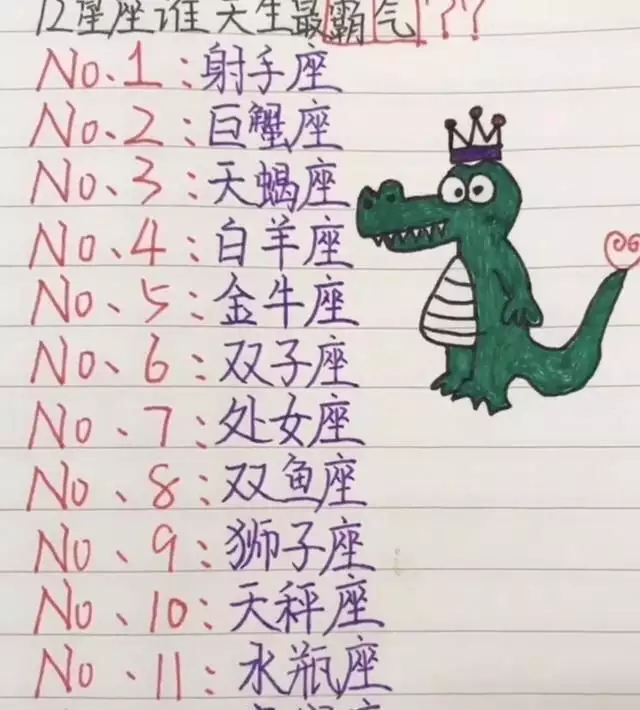 12星座谁天生最霸气??
No.1:射手座
No.2:巨蟹座
No、3:天蝎座
No、4:白羊座
No、5:金牛座
No、6:双子座
No、7:处女座
No、8:双鱼座
No、9:狮子座
No、10:天秤座
No、11:水瓶座